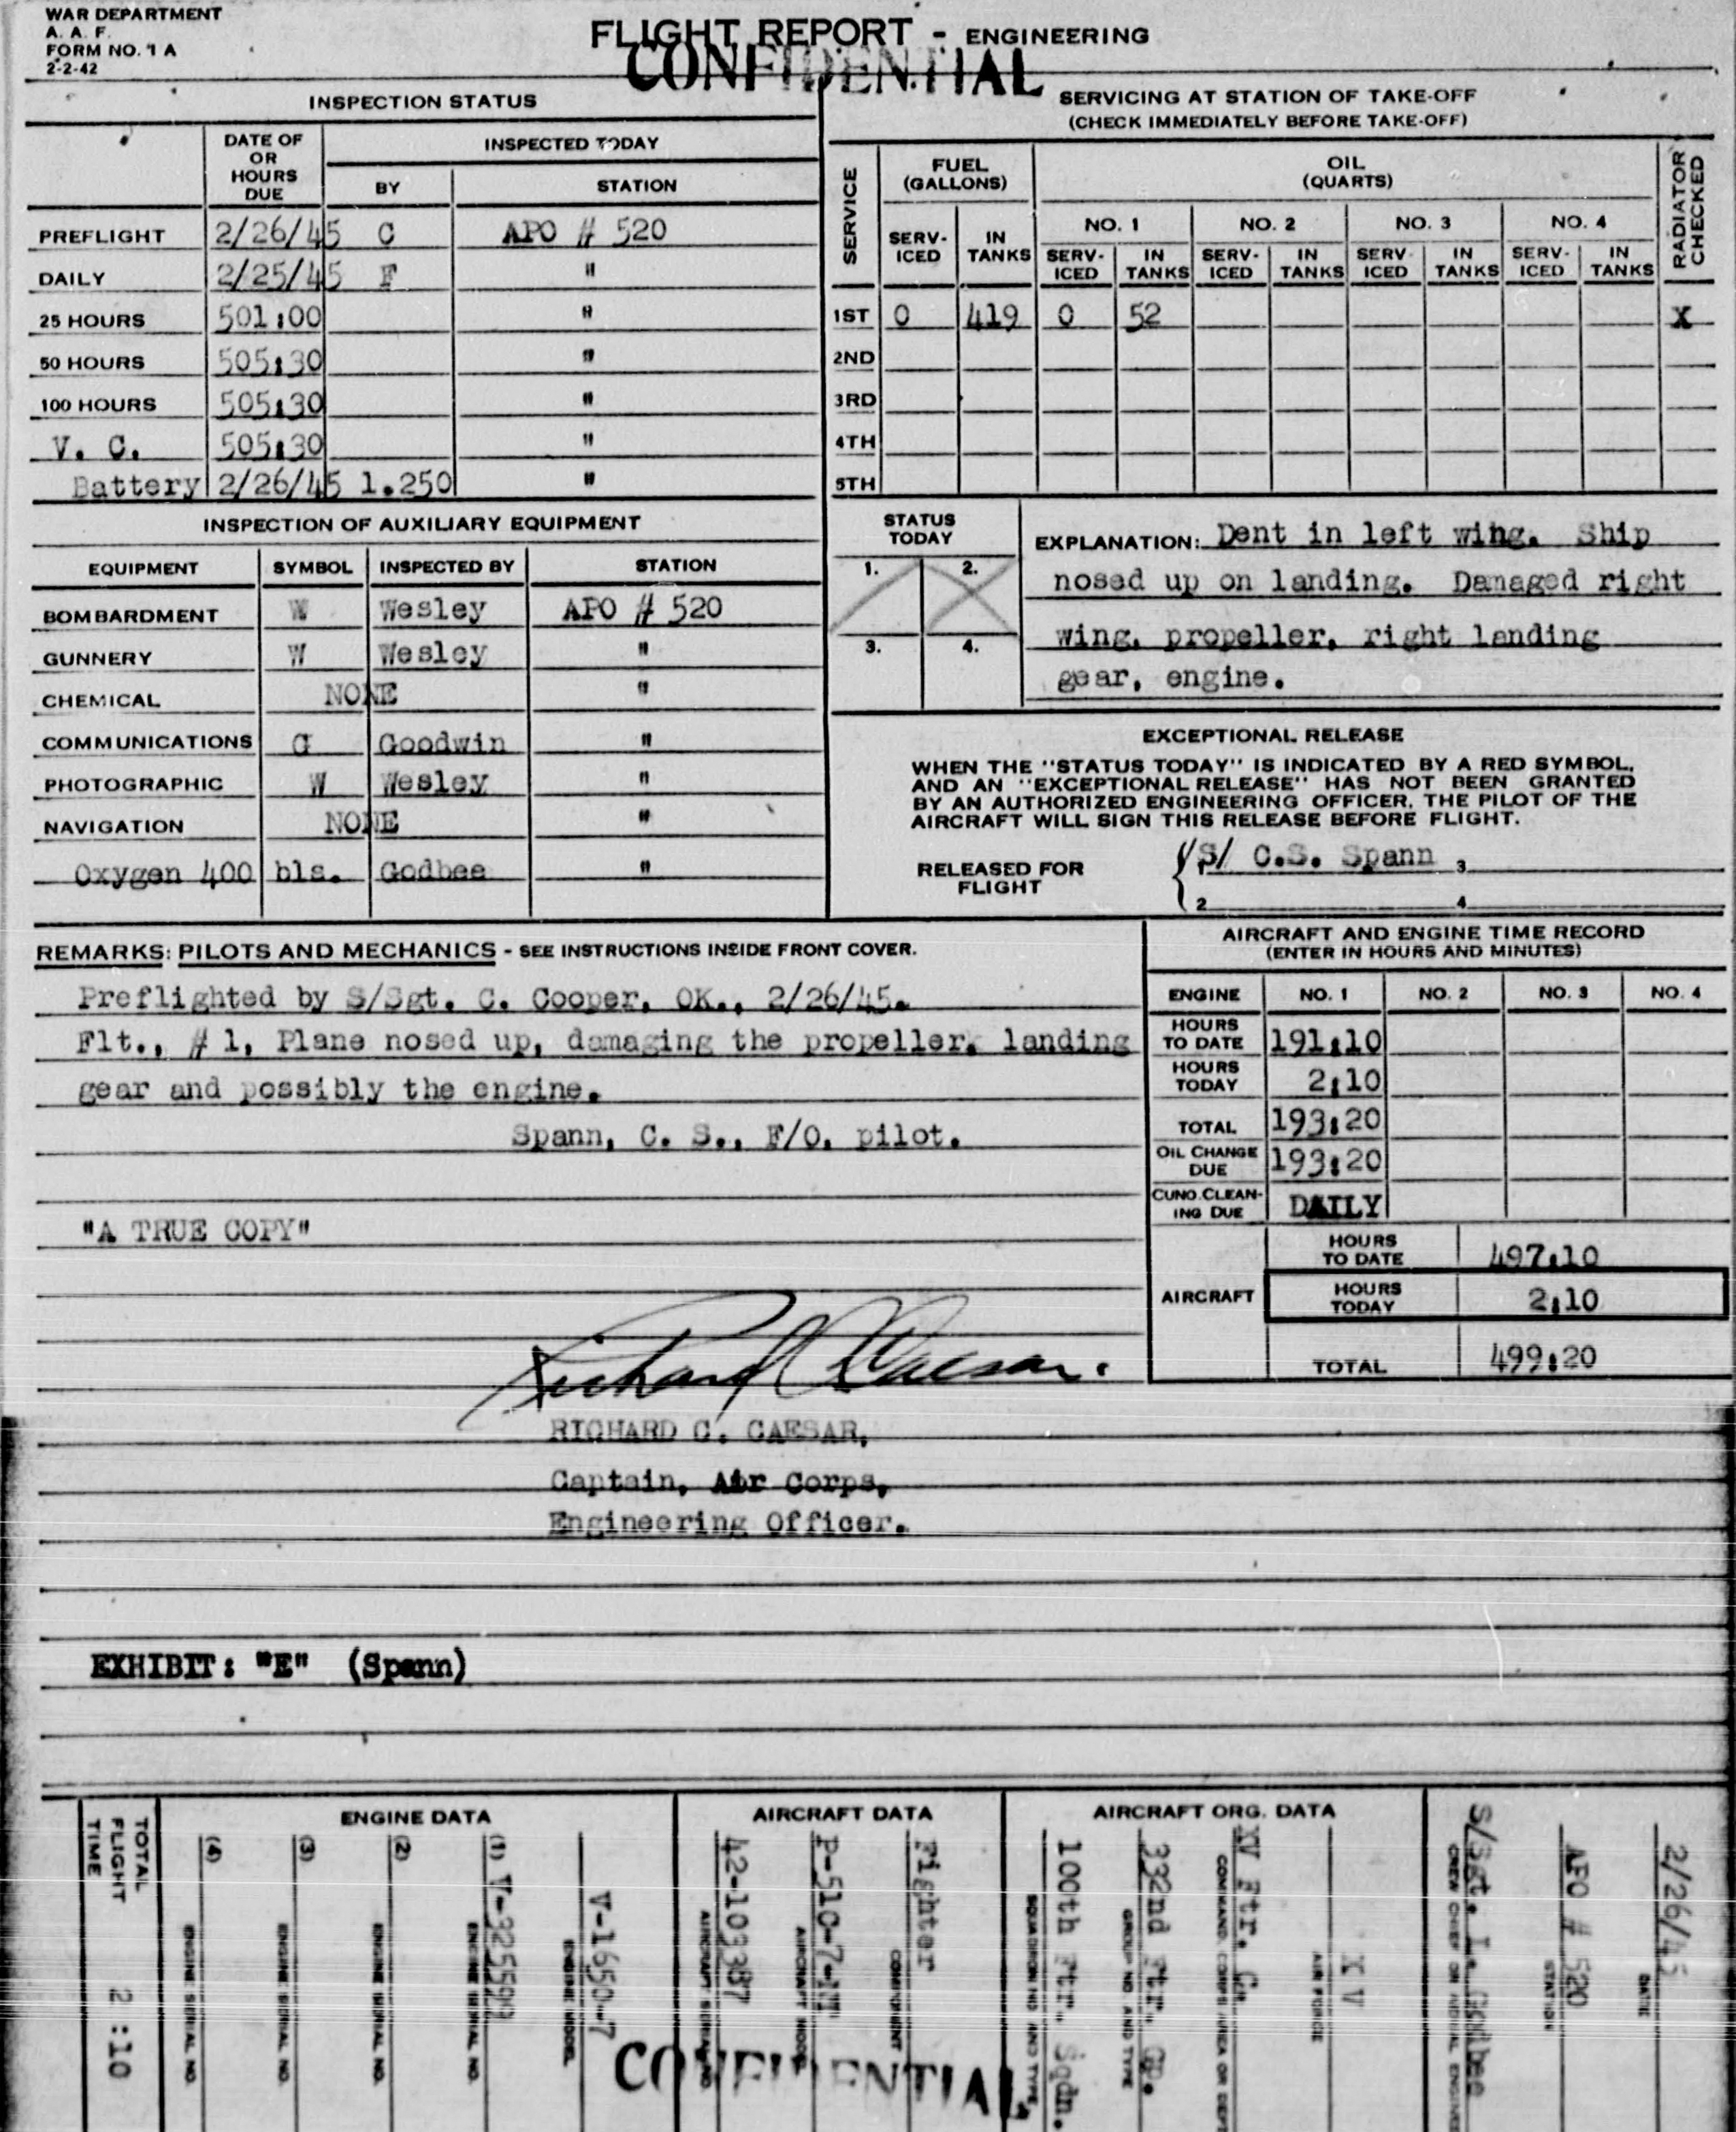 WAR DEPARTMENT
A. A. F.
FORM NO. 1 A
2-2-42
FLIGHT REPORT - ENGINEERING
CONFIDENTIAL
INSPECTION STATUS
DATE OF OR HOURS DUE
INSPECTED TODAY
BY STATION
PREFLIGHT 2/26/45 C APO # 520
DAILY 2/25/45 F "
25 HOURS 501:00 "
50 HOURS 505:30 "
100 HOURS 505:30 "
V. C. 505:30 "
Battery 2/26/45 1.250 "
SERVICING AT STATION OF TAKE-OFF
(CHECK IMMEDIATELY BEFORE TAKE-OFF)
SERVICE
FUEL (GALLONS)
OIL (QUARTS)
RADIATOR CHECKED
NO. 1 NO. 2 NO. 3 NO. 4
SERV-ICED IN TANKS SERV-ICED IN TANKS SERV-ICED IN TANKS SERV-ICED IN TANKS SERV-ICED IN TANKS
1ST 0 419 0 52 X
2ND
3RD
4TH
5TH
INSPECTION OF AUXILIARY EQUIPMENT
EQUIPMENT SYMBOL INSPECTED BY STATION
BOMBARDMENT W Wesley APO # 520
GUNNERY W Wesley "
CHEMICAL NONE "
COMMUNICATIONS G Goodwin "
PHOTOGRAPHIC W Wesley "
NAVIGATION NONE "
Oxygen 400 bls. Godbee "
STATUS TODAY
1. 2.
3. 4.
EXPLANATION: Dent in left wing. Ship
nosed up on landing. Damaged right
wing, propeller, right landing
gear, engine.
EXCEPTIONAL RELEASE
WHEN THE "STATUS TODAY" IS INDICATED BY A RED SYMBOL,
AND AN "EXCEPTIONAL RELEASE" HAS NOT BEEN GRANTED
BY AN AUTHORIZED ENGINEERING OFFICER, THE PILOT OF THE
AIRCRAFT WILL SIGN THIS RELEASE BEFORE FLIGHT.
RELEASED FOR FLIGHT
/S/ C.S. Spann 3
2 4
REMARKS: PILOTS AND MECHANICS - SEE INSTRUCTIONS INSIDE FRONT COVER.
Preflighted by S/Sgt. C. Cooper, OK., 2/26/45.
Flt., # 1, Plane nosed up, damaging the propeller, landing
gear and possibly the engine.
Spann, C. S., F/O, pilot.
"A TRUE COPY"
Richard C Caesar.
RICHARD C. CAESAR,
Captain, Air Corps,
Engineering Officer.
EXHIBIT: "E" (Spann)
AIRCRAFT AND ENGINE TIME RECORD
(ENTER IN HOURS AND MINUTES)
ENGINE NO. 1 NO. 2 NO. 3 NO. 4
HOURS TO DATE 191:10
HOURS TODAY 2:10
TOTAL 193:20
OIL CHANGE DUE 193:20
CUNO CLEAN-ING DUE DAILY
AIRCRAFT
HOURS TO DATE 497:10
HOURS TODAY 2:10
TOTAL 499:20
TOTAL FLIGHT TIME 2:10
ENGINE DATA
(4) ENGINE SERIAL NO.
(3) ENGINE SERIAL NO.
(2) ENGINE SERIAL NO.
(1) V-325599 ENGINE SERIAL NO.
V-1650-7 ENGINE MODEL
AIRCRAFT DATA
42-103387
P-51C-7-NT AIRCRAFT MODEL
Fighter COMPONENT
AIRCRAFT ORG. DATA
100th Ftr. Sqdn. SQUADRON NO. AND TYPE
332nd Ftr. Gp. GROUP NO AND TYPE
XV Ftr. C.
XV AIR FORCE
S/Sgt. Godbee
APO # 520 STATION
2/26/45 DATE
CONFIDENTIAL